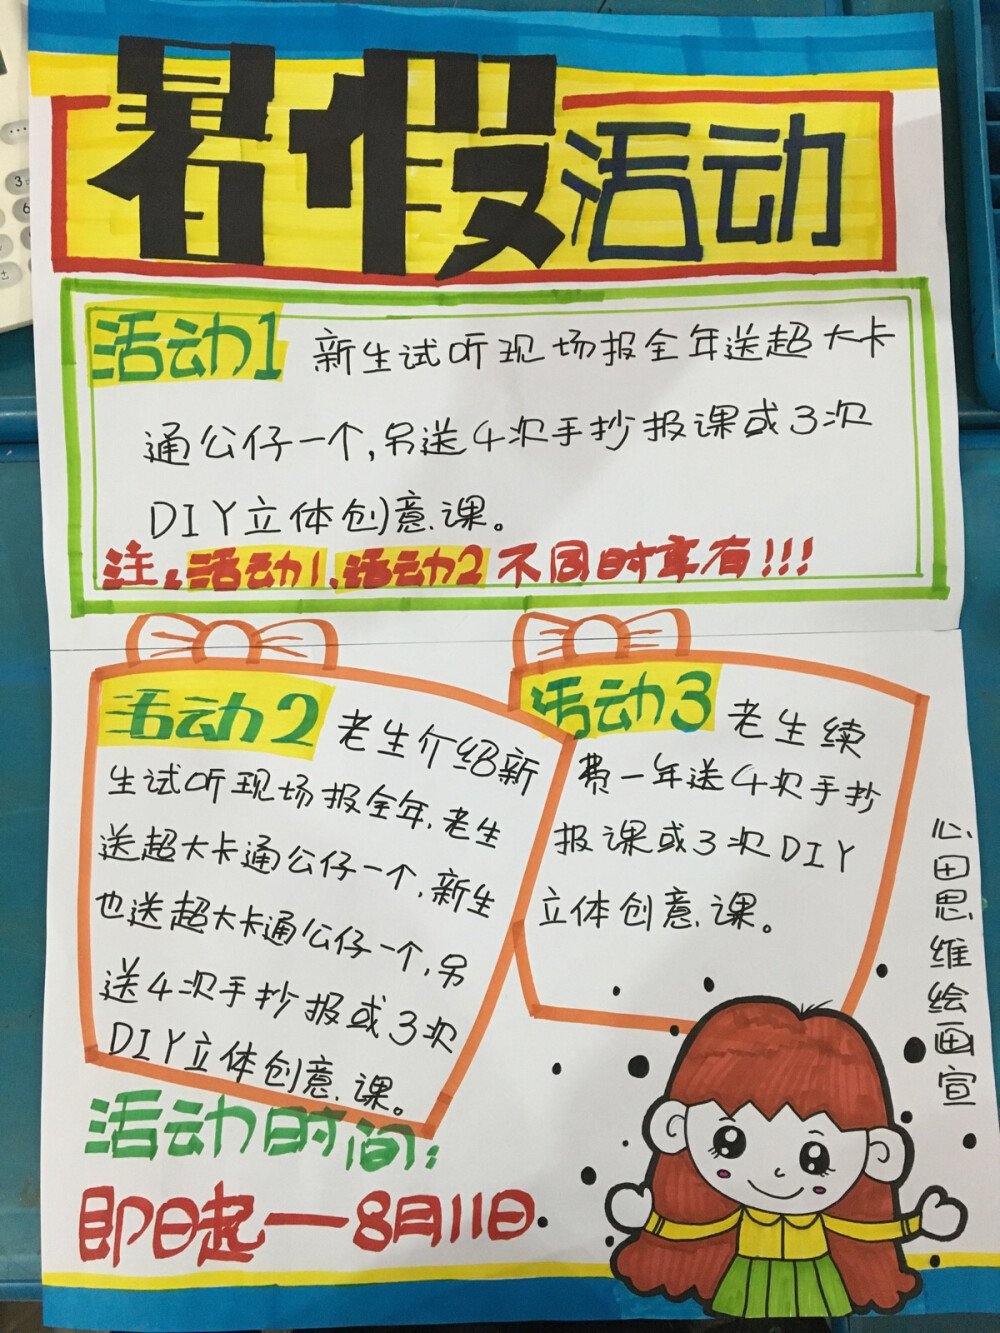 暑假活动
活动1 新生试听现场报全年送超大卡
通公仔一个,另送4次手抄报课或3次
DIY立体创意课。
注:活动1、活动2不同时享有!!!
活动2 老生介绍新
生试听现场报全年,老生
送超大卡通公仔一个,新生
也送超大卡通公仔一个,另
送4次手抄报或3次
DIY立体创意课。
活动3 老生续
费一年送4次手抄
报课或3次DIY
立体创意课。
活动时间:
即日起—8月11日
心田思维绘画宣